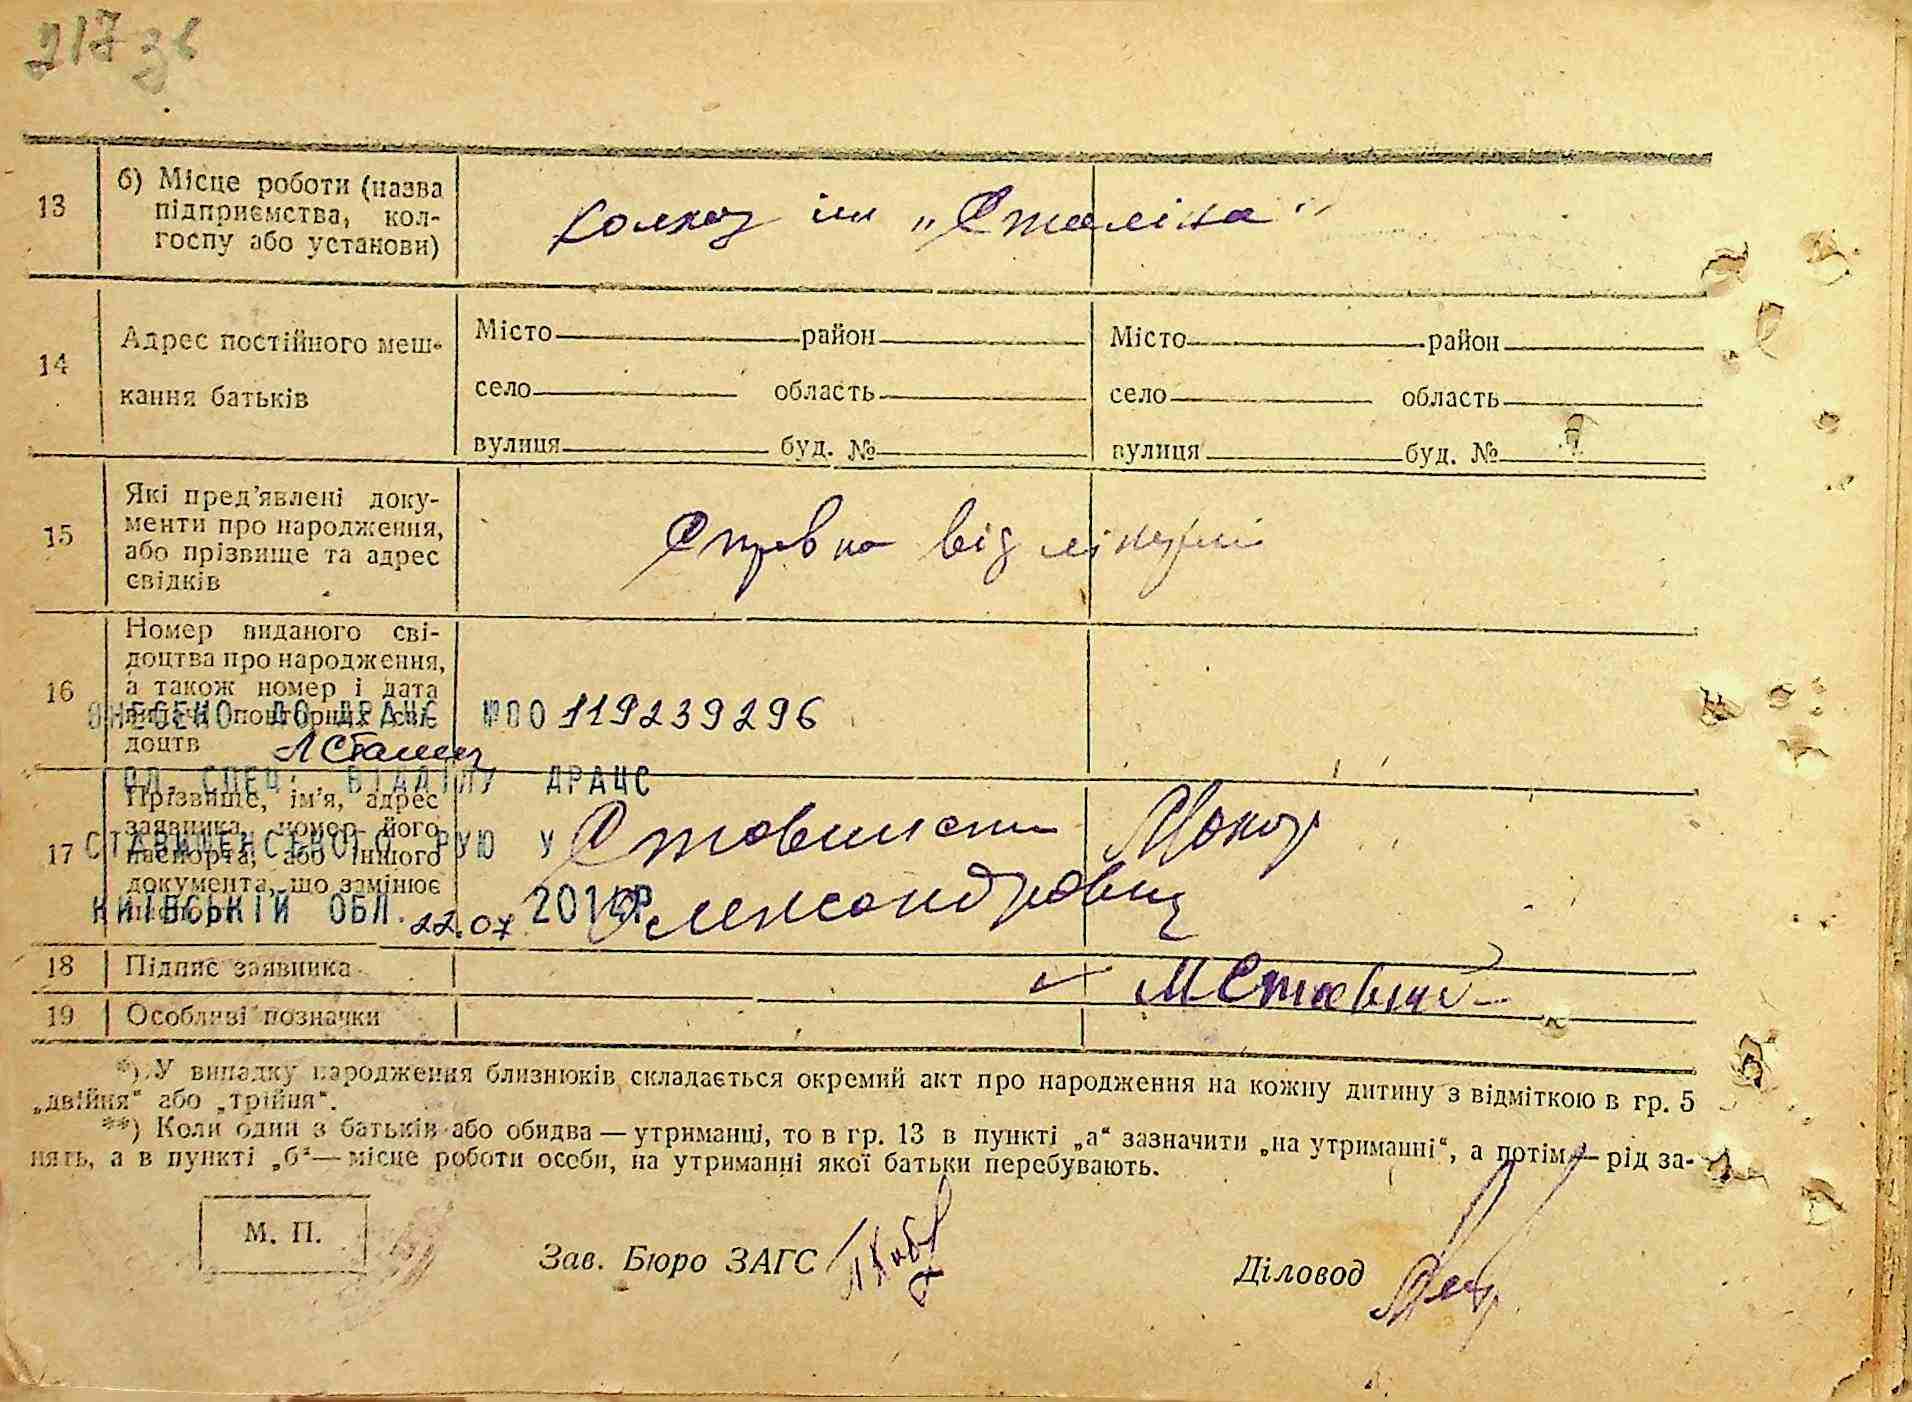 217 зв
13
б) Місце роботи (назва
підприємства, кол-
госпу або установи)
колхоз ім „Сталіна“
14
Адрес постійного меш-
кання батьків
Місто район
село область
вулиця буд. №
Місто район
село область
вулиця буд. №
15
Які пред'явлені доку-
менти про народження,
або прізвище та адрес
свідків
Справка від
16
Номер виданого сві-
доцтва про народження,
а також номер і дата
видачі повторних сві-
доцтв
ВНЕСЕНО ДО ДРАЦС №00119239296
ПД. СПЕЦ. ВІДДІЛУ ДРАЦС
СТАВИЩЕНСЬКОГО РУЮ У
КИЇВСЬКІЙ ОБЛ. 22.07 2014Р
17
Прізвище, ім'я, адрес
заявника, номер його
паспорта, або іншого
документа, що замінює
паспорт
Макар
Олександрович
18
Підпис заявника
19
Особливі позначки
*) У випадку народження близнюків складається окремий акт про народження на кожну дитину з відміткою в гр. 5
„двійня“ або „трійня“.
**) Коли один з батьків або обидва — утриманці, то в гр. 13 в пункті „а“ зазначити „на утриманні“, а потім — рід за-
нять, а в пункті „б“ — місце роботи особи, на утриманні якої батьки перебувають.
М. П.
Зав. Бюро ЗАГС
Діловод